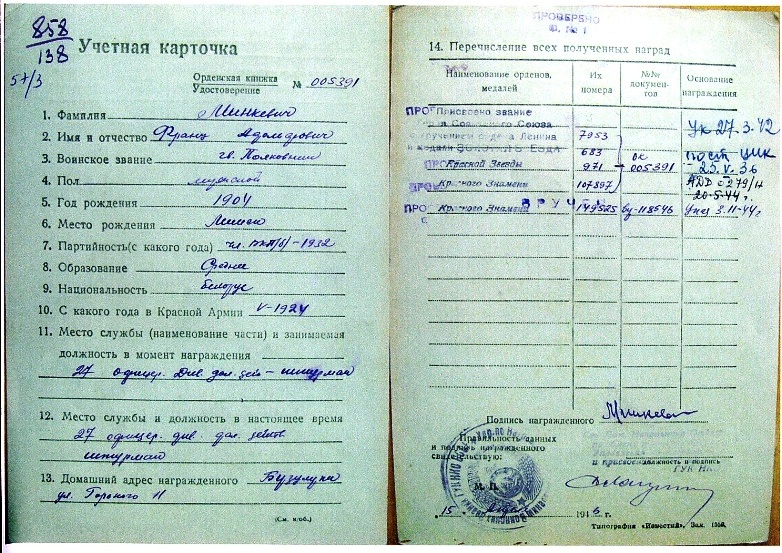 858
138
57/3
Учетная карточка
Орденская книжка
Удостоверение № 005391
1. Фамилия Минкевич
2. Имя и отчество Франц Адольфович
3. Воинское звание гв. Полковник
4. Пол мужской
5. Год рождения 1904
6. Место рождения
7. Партийность(с какого года) чл. ВКП/б/ - 1932
8. Образование Среднее
9. Национальность белорус
10. С какого года в Красной Армии V-1924
11. Место службы (наименование части) и занимаемая
должность в момент награждения
27 офицер. див. дол. - штурман
12. Место службы и должность в настоящее время
27 офицер. див. дол.
штурман
13. Домашний адрес награжденного Бузулук
ул. Горького 11
(См. н/об.)
ПРОВЕРЕНО
Ф. № 1
14. Перечисление всех полученных наград
Наименование орденов, медалей
Их номера
№№ документов
Основание награждения
Присвоено звание
Советского Союза
с вручением ордена Ленина 7953 Ук 27.3.42
и медали 683 пост ЦИК
Красной Звезды 971 ок 005391 25.V.36
Красного Знамени 107897 20-5-44г.
Красного Знамени ВРУЧ 149525 ву-118546 Указ 3.11-44г
Подпись награжденного Минкевич
Правильность данных
и подпись награжденного
свидетельствую:
должность и подпись
ГУК НК
М. П.
15 194 г.
Типография «Известий». Зак. 1556.